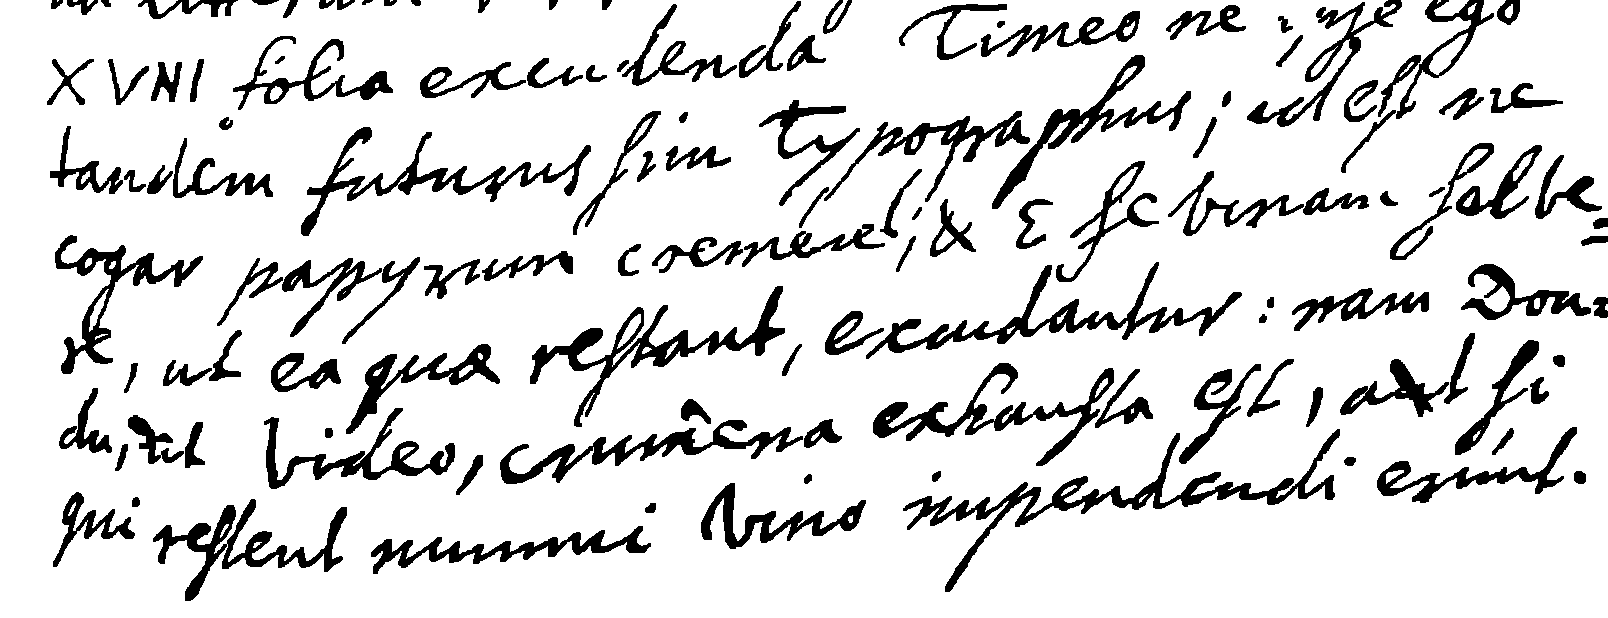 XVIII folia excudenda Timeo ne ipse ego
tandem futurus sim Typographus; id est ne
cogar papyrum emere; & & se binam solve=
re, ut ea quæ restant, excudantur: nam Dou=
du, ut video, crumêna exhausta est, aut si
qui restent nummi vino impendendi erunt.